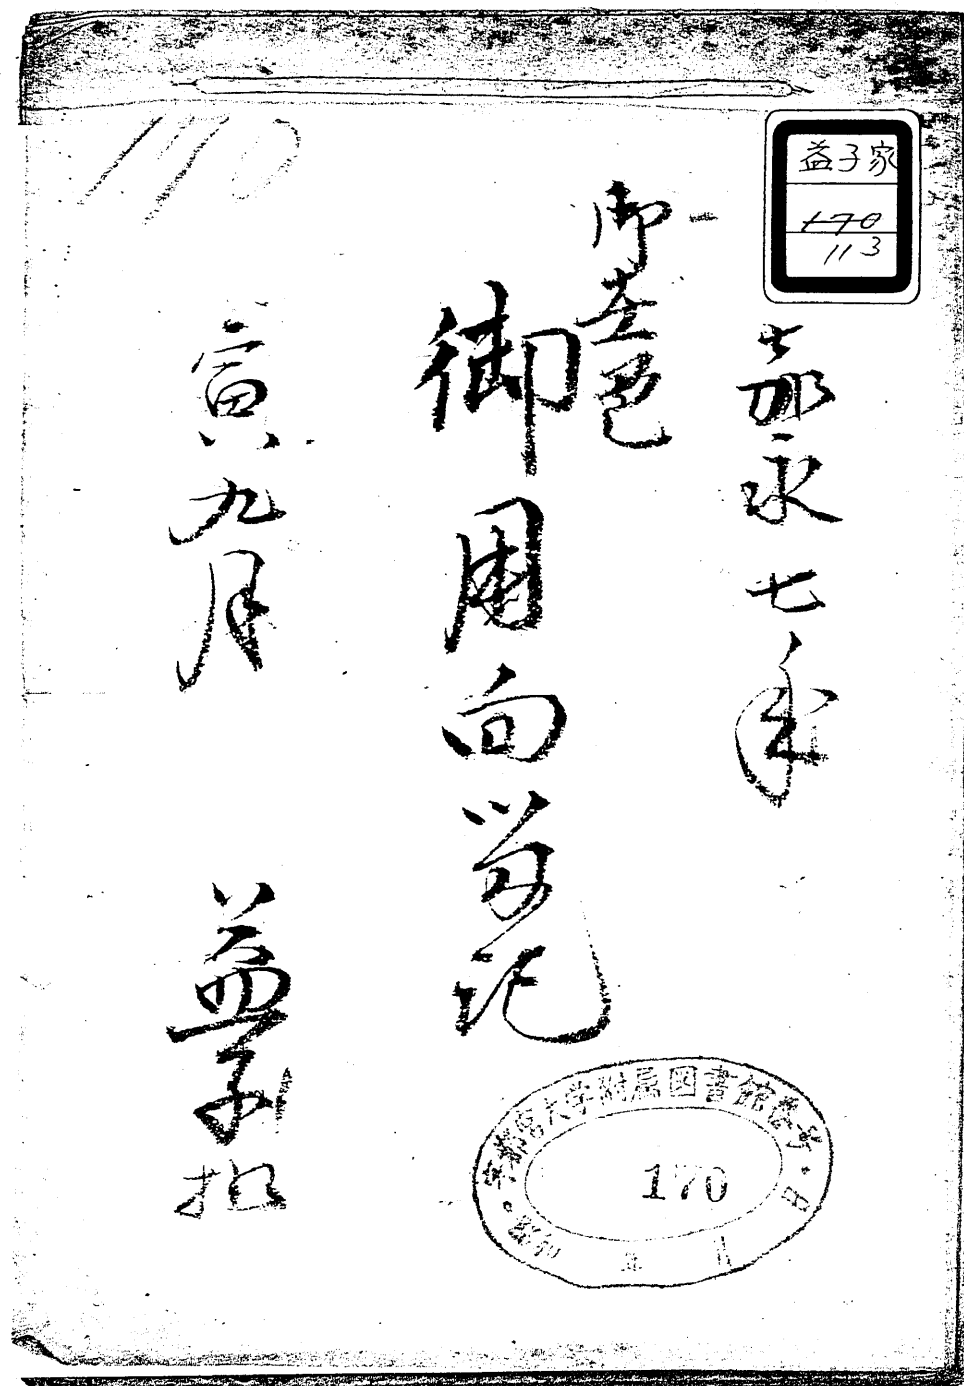 益子家
170
113
170
嘉永七年
御在邑
御用向留記
寅九月
益子扣
宇都宮大学附属図書館
170
年 月 日